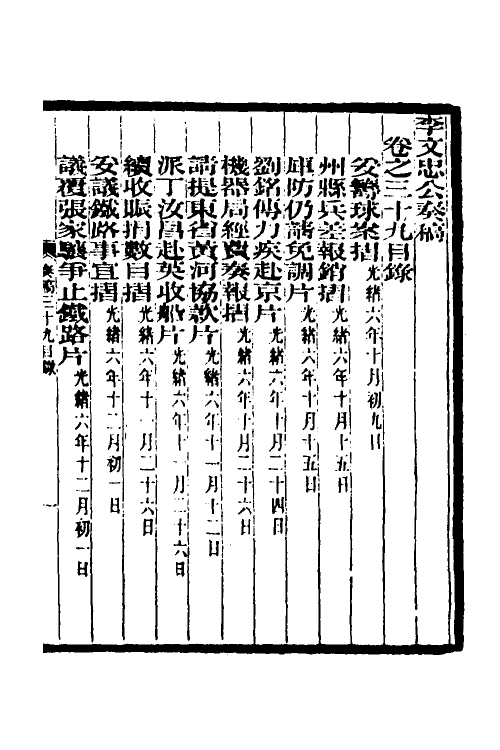 李文忠公奏稿
卷之三十九目錄
妥籌球案摺 光緒六年十月初九日
州縣兵差報銷摺 光緒六年十月十五日
庫防仍請免調片 光緒六年十月十五日
劉銘傳力疾赴京片 光緒六年十月二十四日
機器局經費奏報摺 光緒六年十月二十六日
請提東省黃河協款片 光緒六年十一月十二日
派丁汝昌赴英收船片 光緒六年十一月二十六日
續收賑捐數目摺 光緒六年十一月二十六日
妥議鐵路事宜摺 光緒六年十二月初一日
議覆張家驤爭止鐵路片 光緒六年十二月初一日
奏稿三十九目錄